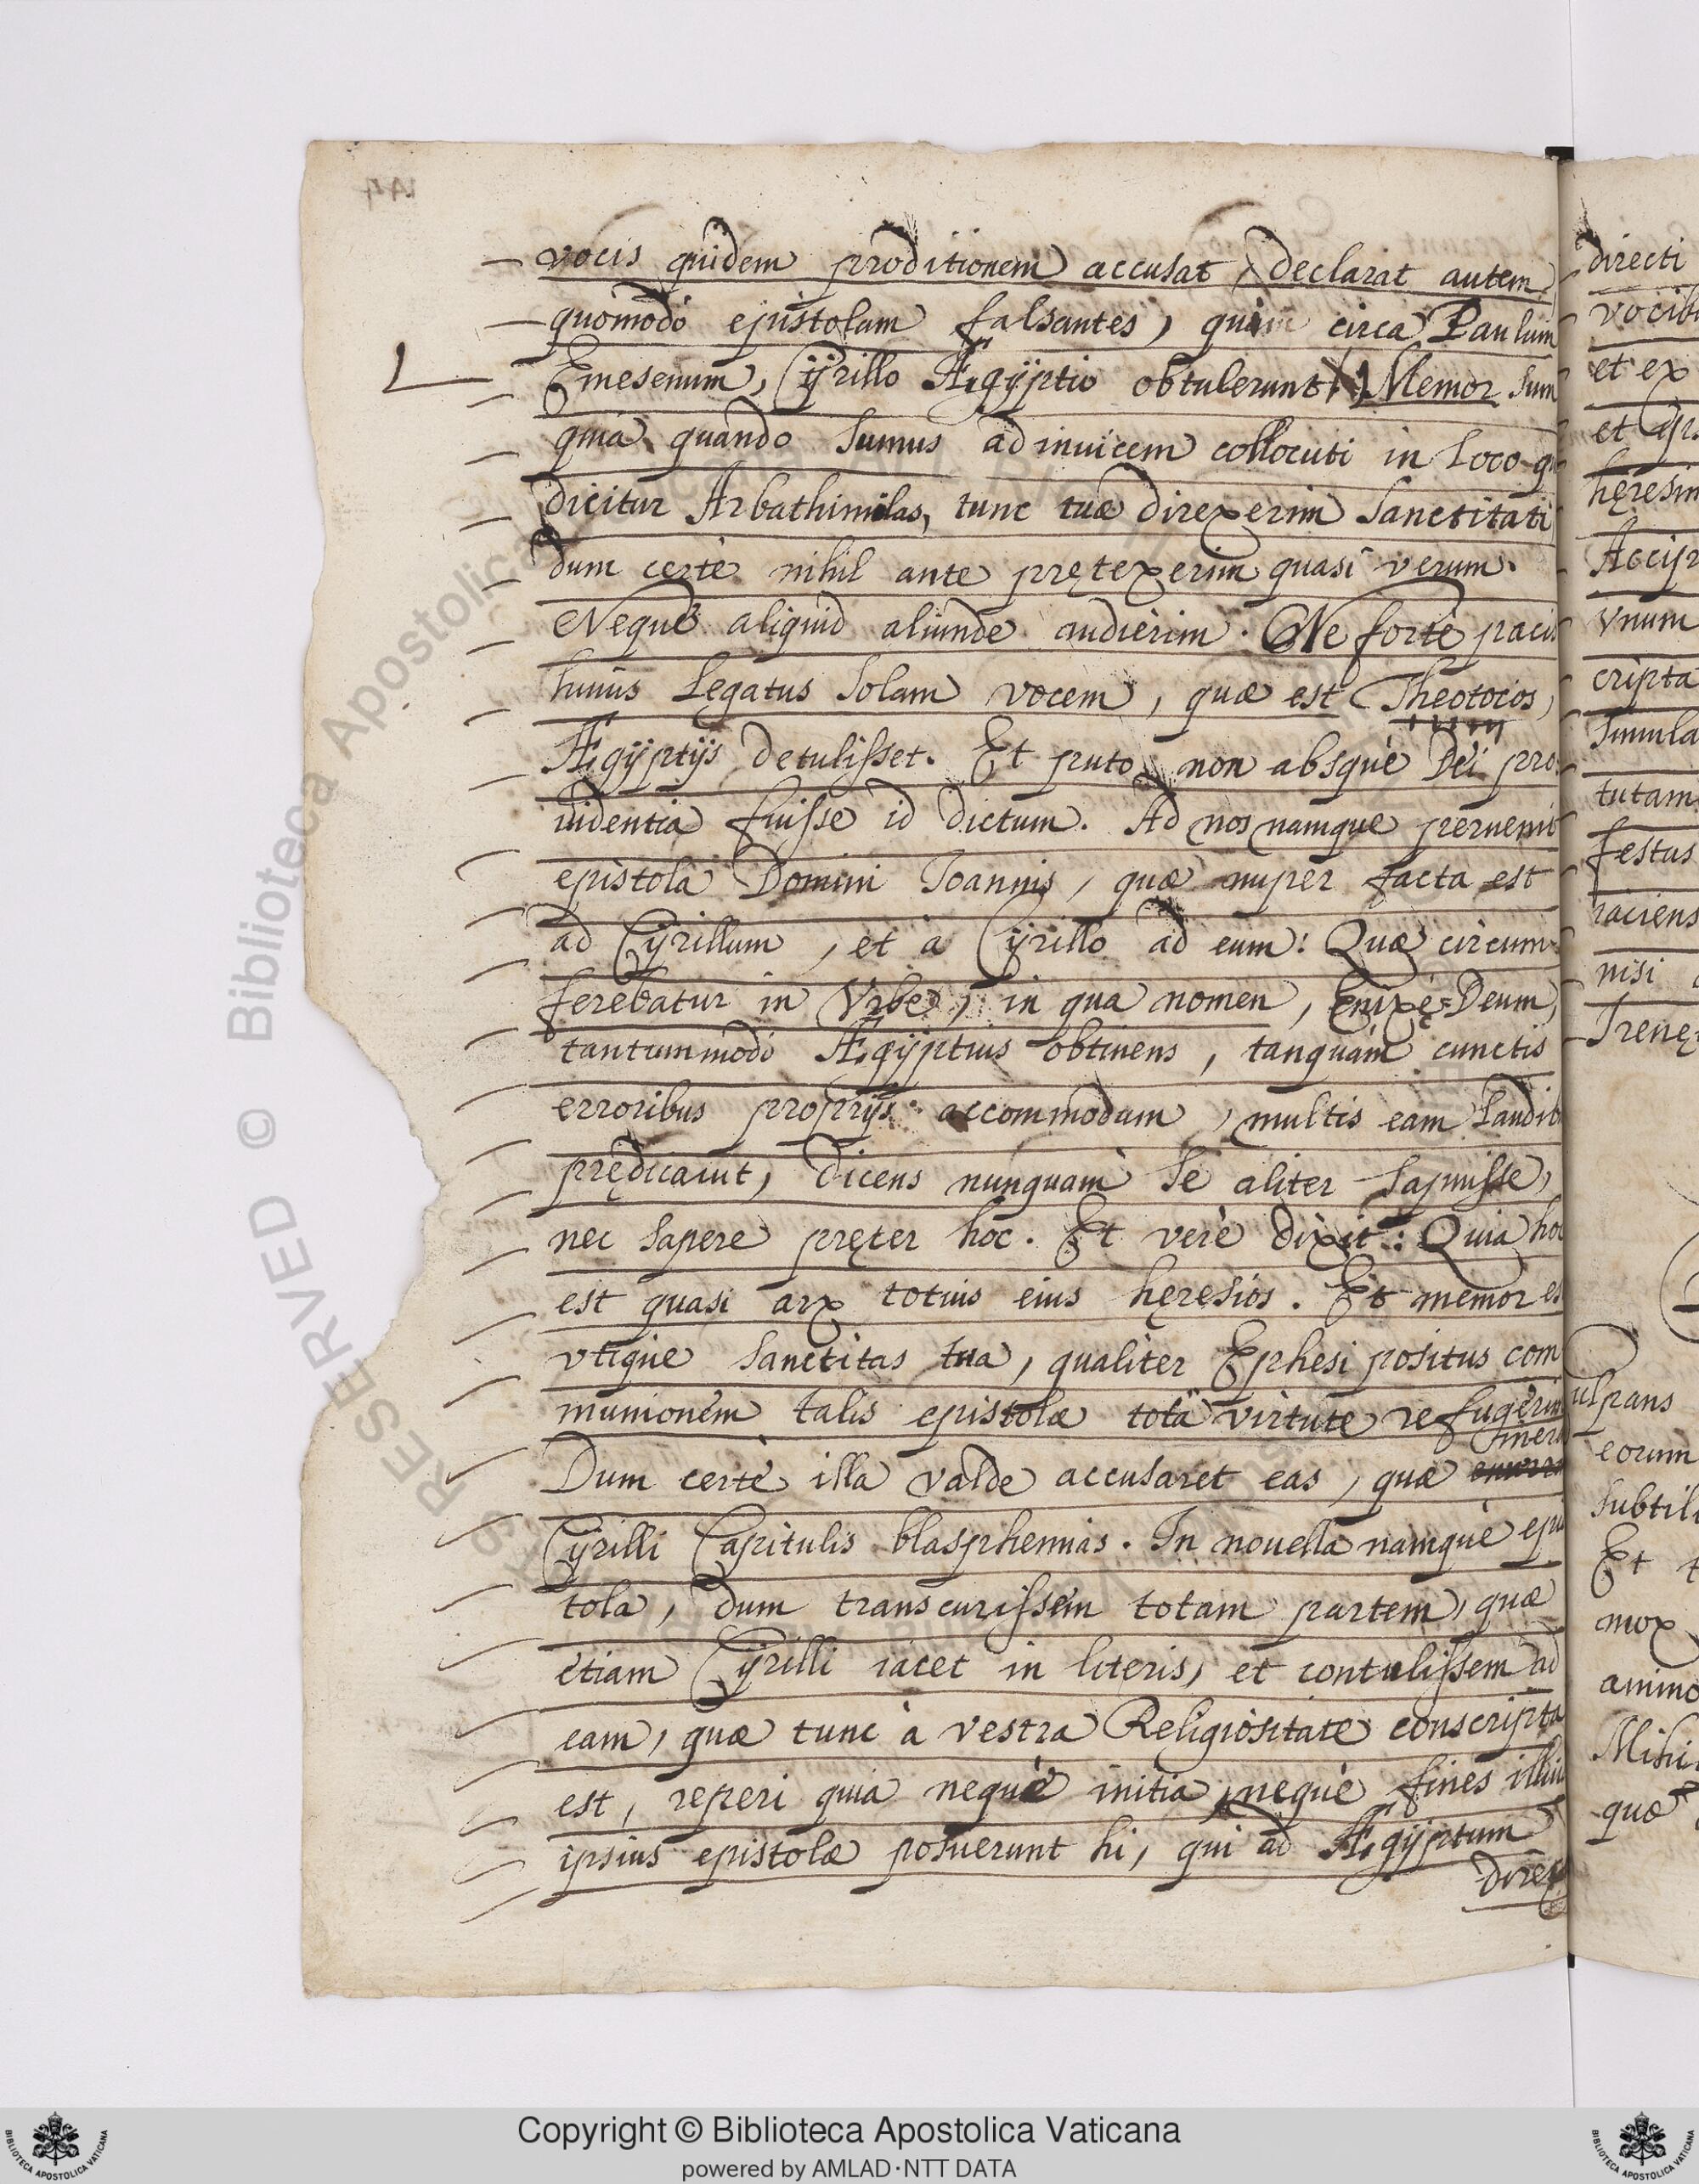 vocis quidem proditionem accusat, declarat autem
quomodo epistolam falsantes, qui circa Paulum
Emesenum, Cÿrillo Ægÿptio obtulerunt. Memor sum
quia quando sumus adinuicem collocuti in loco
dicitur Arbathimilas, tunc tuæ direxerim Sanctitati
dum certè nihil ante prętexerim quasi verum.
Neque aliquid aliunde audierim. Ne fortè pacis
huius Legatus solam vocem, quæ est Theotocos,
Ægÿptijs detulisset. Et puto non absque Dei pro
uidentia fuisse id dictum. Ad nos namque peruenit
epistola Domini Ioannis, quæ nuper facta est
ad Cÿrillum, et à Cÿrillo ad eum: Quæ circum
ferebatur in Vrbe, in qua nomen, Enixę Deum,
tantummodo Ægÿptius obtinens, tanquam cunctis
erroribus proprijs accommodam, multis eam
prędicauit, dicens nunquam se aliter sapuisse,
nec sapere pręter hoc. Et verè dixit: Quia hoc
est quasi arx totius eius hęresios. Et memor es
vtique sanctitas tua, qualiter Ephesi positus com
munionem talis epistolæ tota virtute refugerim
Dum certè illa valde accusaret eas, quæ
Cÿrilli Capitulis blasphemias. In nouella namque epis
tola, dum transcurissem totam partem, quæ
etiam Cÿrilli iacet in literis, et contulissem ad
eam, quæ tunc à vestra Religiositate conscripta
est, reperi quia neque initia, neque fines illius
ipsius epistolæ posuerunt hi, qui ad Ægÿptum
direx
directi
et ex
hęresim
vnum
cripta
tutam
festus
raciens
nisi
eorum
Et
mox
quæ
© Biblioteca Apostolica Vaticana
Copyright © Biblioteca Apostolica Vaticana
powered by AMLAD·NTT DATA
BIBLIOTECA APOSTOLICA VATICANA
BIBLIOTECA APOSTOLICA VATICANA